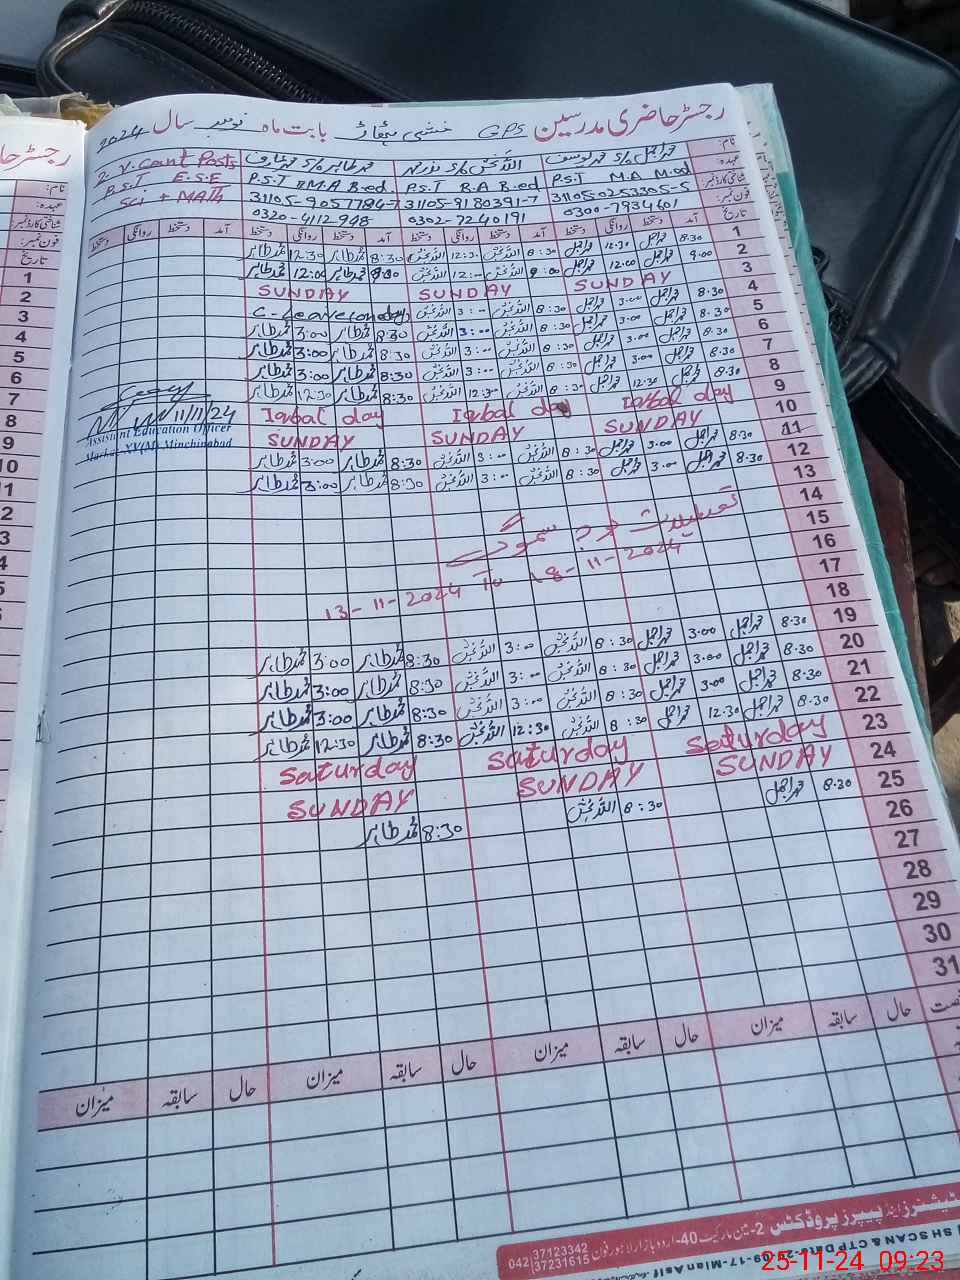 رجسٹر حاضری مدرسین GPS بابت ماہ نومبر سال 2024
نام:
عہدہ:
شناختی کارڈ نمبر:
فون نمبر:
محمد اجمل S/o محمد یوسف
P.S.T M.A M.ed
31105-0253305-5
0300-7934401
P.S.T B.A B.ed
31105-9180391-7
0302-7240191
P.S.T M.A B.ed
31105-9057784-7
0320-4112948
2 V.Cant Posts
P.S.T E.S.E
Sci + MATH
تاریخ آمد دستخط روانگی دستخط آمد دستخط روانگی دستخط آمد دستخط روانگی دستخط آمد دستخط روانگی دستخط
1 8.30 محمد اجمل 12.30 محمد اجمل 8:30 اللہ بخش 12:30 اللہ بخش 8:30 محمد طاہر 12:30 محمد طاہر
2 9.00 محمد اجمل 12.00 محمد اجمل 9:00 اللہ بخش 12:00 اللہ بخش 9:00 محمد طاہر 12:00 محمد طاہر
3 SUNDAY SUNDAY SUNDAY
4 8.30 محمد اجمل 3.00 محمد اجمل 8:30 اللہ بخش 3:00 اللہ بخش C-Leave one day
5 8.30 محمد اجمل 3.00 محمد اجمل 8:30 اللہ بخش 3:00 اللہ بخش 8:30 محمد طاہر 3:00 محمد طاہر
6 8.30 محمد اجمل 3.00 محمد اجمل 8:30 اللہ بخش 3:00 اللہ بخش 8:30 محمد طاہر 3:00 محمد طاہر
7 8.30 محمد اجمل 3.00 محمد اجمل 8:30 اللہ بخش 3:00 اللہ بخش 8:30 محمد طاہر 3:00 محمد طاہر
8 8.30 محمد اجمل 12.30 محمد اجمل 8:30 اللہ بخش 12:30 اللہ بخش 8:30 محمد طاہر 12:30 محمد طاہر
9 Iqbal day Iqbal day Iqbal day
10 SUNDAY SUNDAY SUNDAY
11 8.30 محمد اجمل 3.00 محمد اجمل 8:30 اللہ بخش 3:00 اللہ بخش 8:30 محمد طاہر 3:00 محمد طاہر
12 8.30 محمد اجمل 3.00 محمد اجمل 8:30 اللہ بخش 3:00 اللہ بخش 8:30 محمد طاہر 3:00 محمد طاہر
11/11/24
Assistant Education Officer
Markaz XV(M) Minchinabad
13
14
تعطیلات بوجہ سموگ
15
16
13-11-2024 To 18-11-2024
17
18
19 8.30 محمد اجمل 3.00 محمد اجمل 8:30 اللہ بخش 3:00 اللہ بخش 8:30 محمد طاہر 3:00 محمد طاہر
20 8.30 محمد اجمل 3.00 محمد اجمل 8:30 اللہ بخش 3:00 اللہ بخش 8:30 محمد طاہر 3:00 محمد طاہر
21 8.30 محمد اجمل 3.00 محمد اجمل 8:30 اللہ بخش 3:00 اللہ بخش 8:30 محمد طاہر 3:00 محمد طاہر
22 8.30 محمد اجمل 12.30 محمد اجمل 8:30 اللہ بخش 12:30 اللہ بخش 8:30 محمد طاہر 12:30 محمد طاہر
23 Saturday Saturday Saturday
24 SUNDAY SUNDAY SUNDAY
25 8.30 محمد اجمل 8:30 اللہ بخش 8:30 محمد طاہر
26
27
28
29
30
31
حال سابقہ میزان حال سابقہ میزان حال سابقہ میزان حال سابقہ میزان
پیپرز پروڈکٹس 2-مین مارکیٹ 40-اردو بازار لاہور فون
042 37123342
37231615
SH SCAN & CTP
25-11-24 09:23